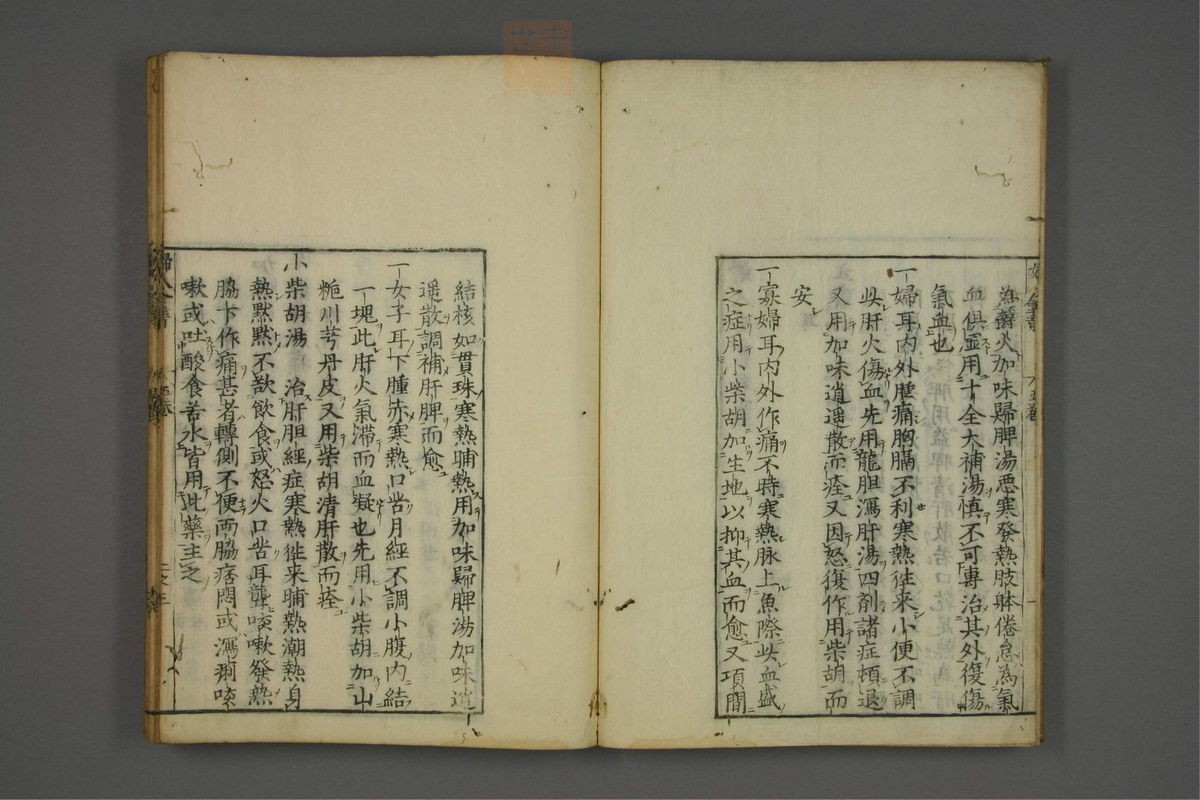 為欝火加味歸脾湯惡寒發熱肢躰倦怠為氣
血俱虛用十全大補湯慎不可專治其外復傷
氣血也
一婦耳内外腫痛胸膈不利寒熱徃来小便不調
此肝火傷血先用龍胆瀉肝湯四剤諸症頓退
又用加味逍遥散而痊又因怒復作用柴胡而
安
一寡婦耳内外作痛不時寒熱脉上魚際此血盛
之症用小柴胡加生地以抑其血而愈又項間
結核如貫珠寒熱晡熱用加味歸脾湯加味逍
遥散調補肝脾而愈
一女子耳下腫赤寒熱口苦月經不調小腹内結
一塊此肝火氣滞而血凝也先用小柴胡加山
梔川芎丹皮又用柴胡清肝散而痊
小柴胡湯 治肝胆經症寒熱徃来晡熱潮熱身
熱默默不欲飲食或怒火口苦耳聾咳嗽發熱
脇下作痛甚者轉側不便両脇痞悶或瀉痢咳
嗽或吐酸食苦水皆用此藥主之